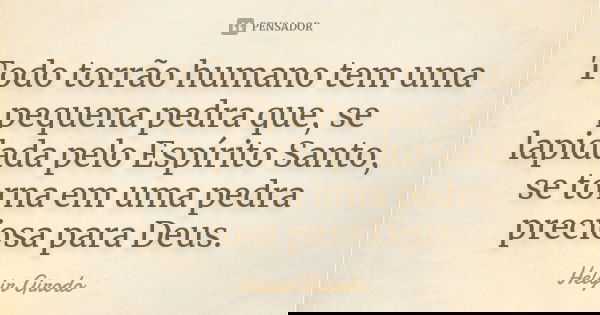 PENSADOR
Todo torrão humano tem uma
pequena pedra que, se
lapidada pelo Espírito Santo,
se torna em uma pedra
preciosa para Deus.
Helgir Girodo